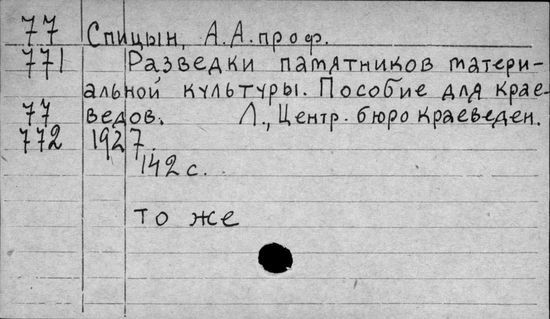 77 Спицын, А. А. проф.
771 Разведки памятников матери-
альной культуры. Пособие для крае-
77 ведов. Л., Центр. бюро краеведен.
772 1927.
142 с.
то же